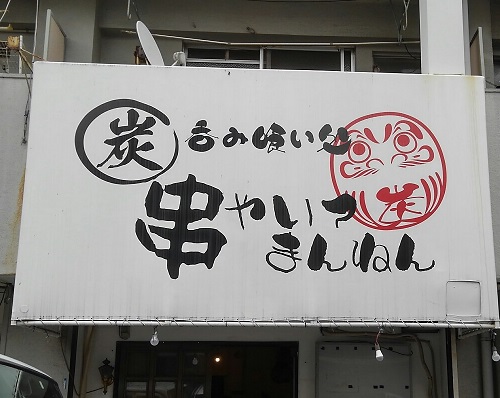 炭 呑み喰い処
炭
串やいつ
まんねん